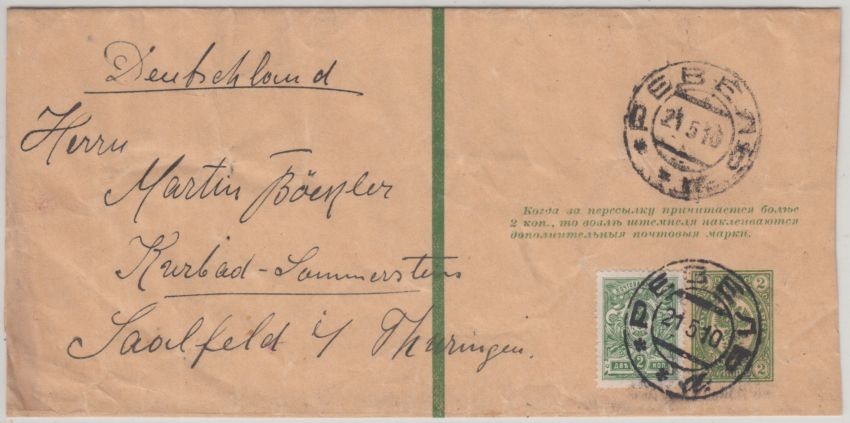 Deutschland
Herrn
Martin Böckler
Kurbad-Sommerstein
Saalfeld i/ Thüringen.
РЕВЕЛЬ
21 5 10
Когда за пересылку причитается болѣе
2 коп., то возлѣ штемпеля наклеиваются
дополнительныя почтовыя марки.
РЕВЕЛЬ
21 5 10
ПОЧТОВАЯ
ДВѢ 2 КОП.
2
2